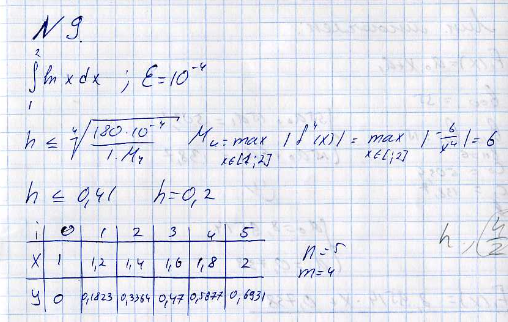 N 9.
2
∫ ln x dx ; ε = 10⁻⁴
1
h ≤ ⁴√(180·10⁻⁴ / 1·M₄) M₄ = max x∈[1;2] |f⁴(x)| = max x∈[1;2] |-6/x⁴| = 6
h ≤ 0,41 h = 0,2
i 0 1 2 3 4 5
x 1 1,2 1,4 1,6 1,8 2
y 0 0,1823 0,3364 0,47 0,5877 0,6931
n = 5
m = 4